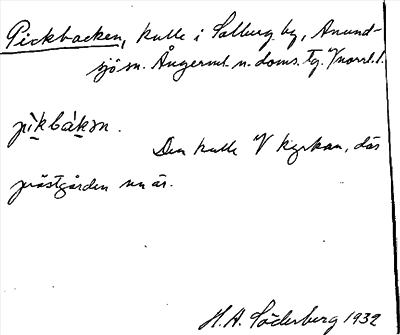 Pickbacken, kulle i Solberg by, Anund-
sjö sn. Ångerml. n. doms. tg. V norrl. l.
pìkbákən.
Den kulle V kyrkan, där
prästgården nu är.
H. A. Söderberg 1932